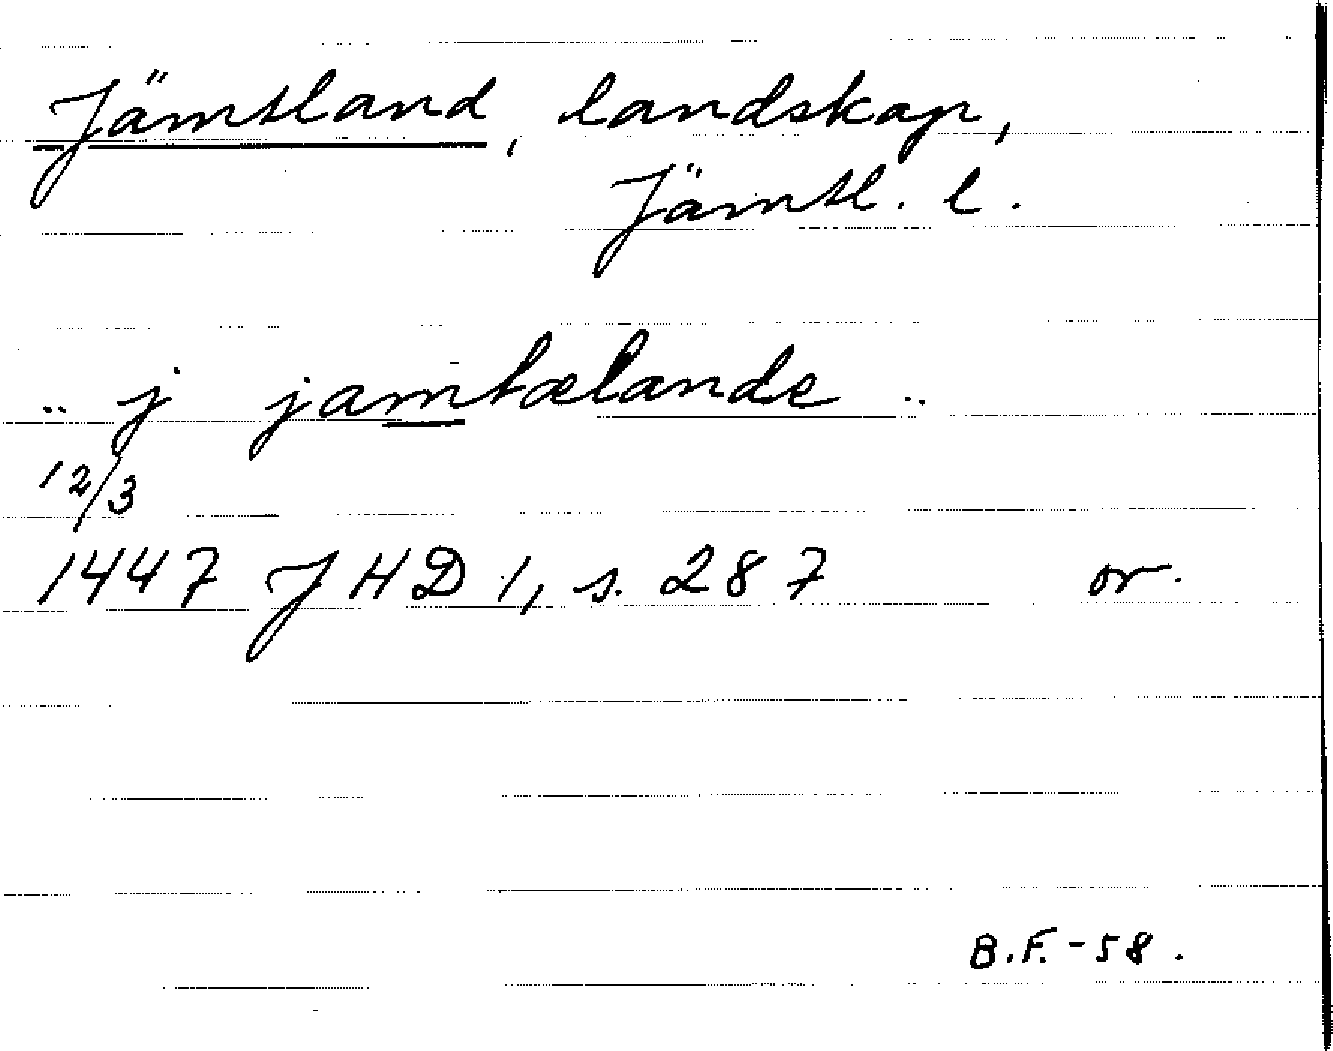 Jämtland, landskap,
Jämtl. l.
.. j jamtælande ..
12/3
1447 JHD 1, s. 287 or.
B.F. -58.